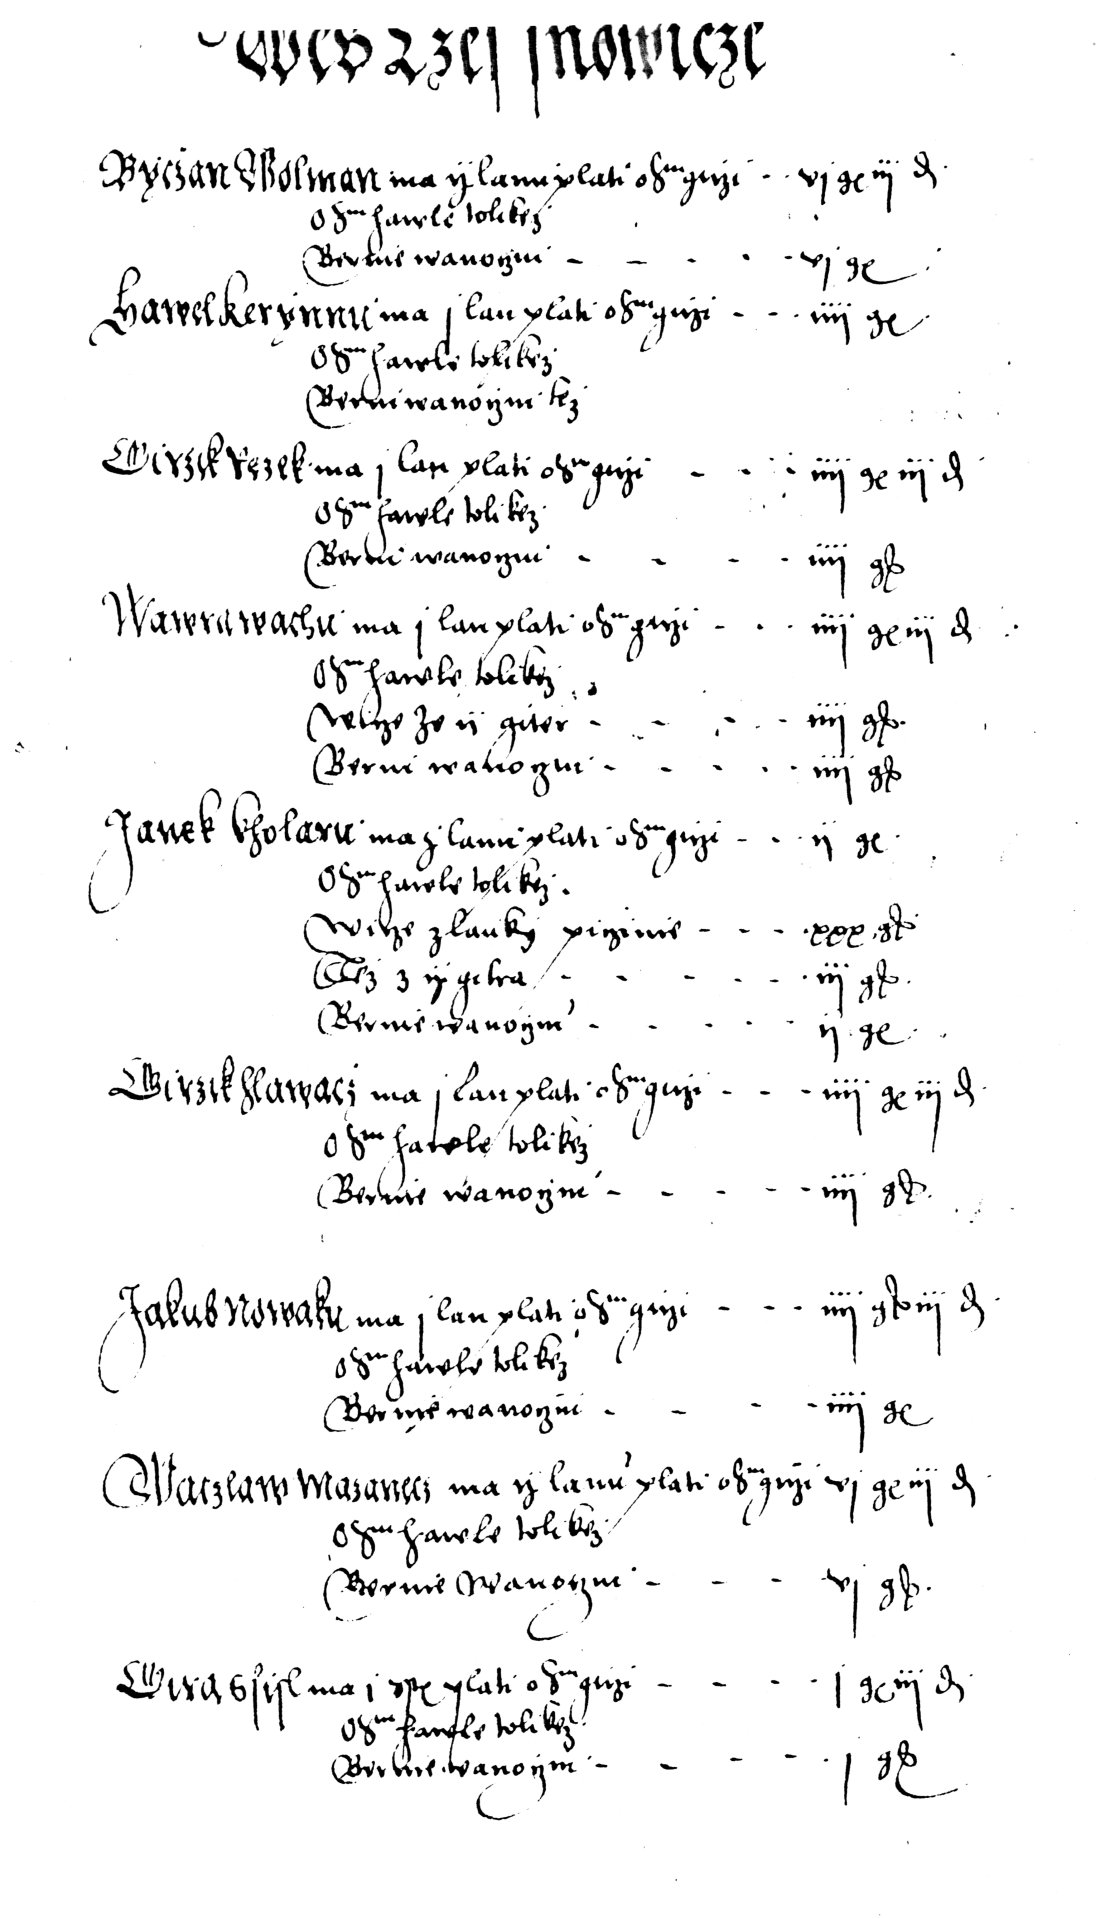 We Rzesnowicze
Ryczan Wolman ma ij lanu plati o Sm girzi vj ge iij d
O Sm hawle tolikez
Bernie wanoczni vj ge
Hawel ma j lan plati o Sm girzi iiij ge
O Sm hawle tolikez
Berni wanoczni tez
Girzik Rezek ma j lan plati o Sm girzi iiij ge iij d
O Sm hawle tolikez
Berni wanoczni iiij gr
Wawra wachu ma j lan plati o Sm girzi iiij ge iij d
O Sm hawle tolikez
Wicze ze ij giter iiij gr
Berni wanoczni iiij gr
Janek kholaru ma z lanu plati o Sm girzi ij ge
O Sm hawle tolikez
Wicze z lauky xxx gr
Tez z ij gitra iij gr
Bernie wanoczni ij ge
Girzik hlawacz ma j lan plati o Sm girzi iiij ge iij d
O Sm hawle tolikez
Bernie wanoczni iiij gr
Jakub Nowaku ma j lan plati o Sm girzi iiij gr iij d
O Sm hawle tolikez
Bernie wanoczni iiij ge
Waczlaw Mazanecz ma ij lanu plati o Sm girzi vj ge iij d
O Sm hawle tolikez
Bernie Wanoczni vj gr
Gira ma j plati o Sm girzi j ge iij d
O Sm hawle tolikez
Bernie wanoczni j gr